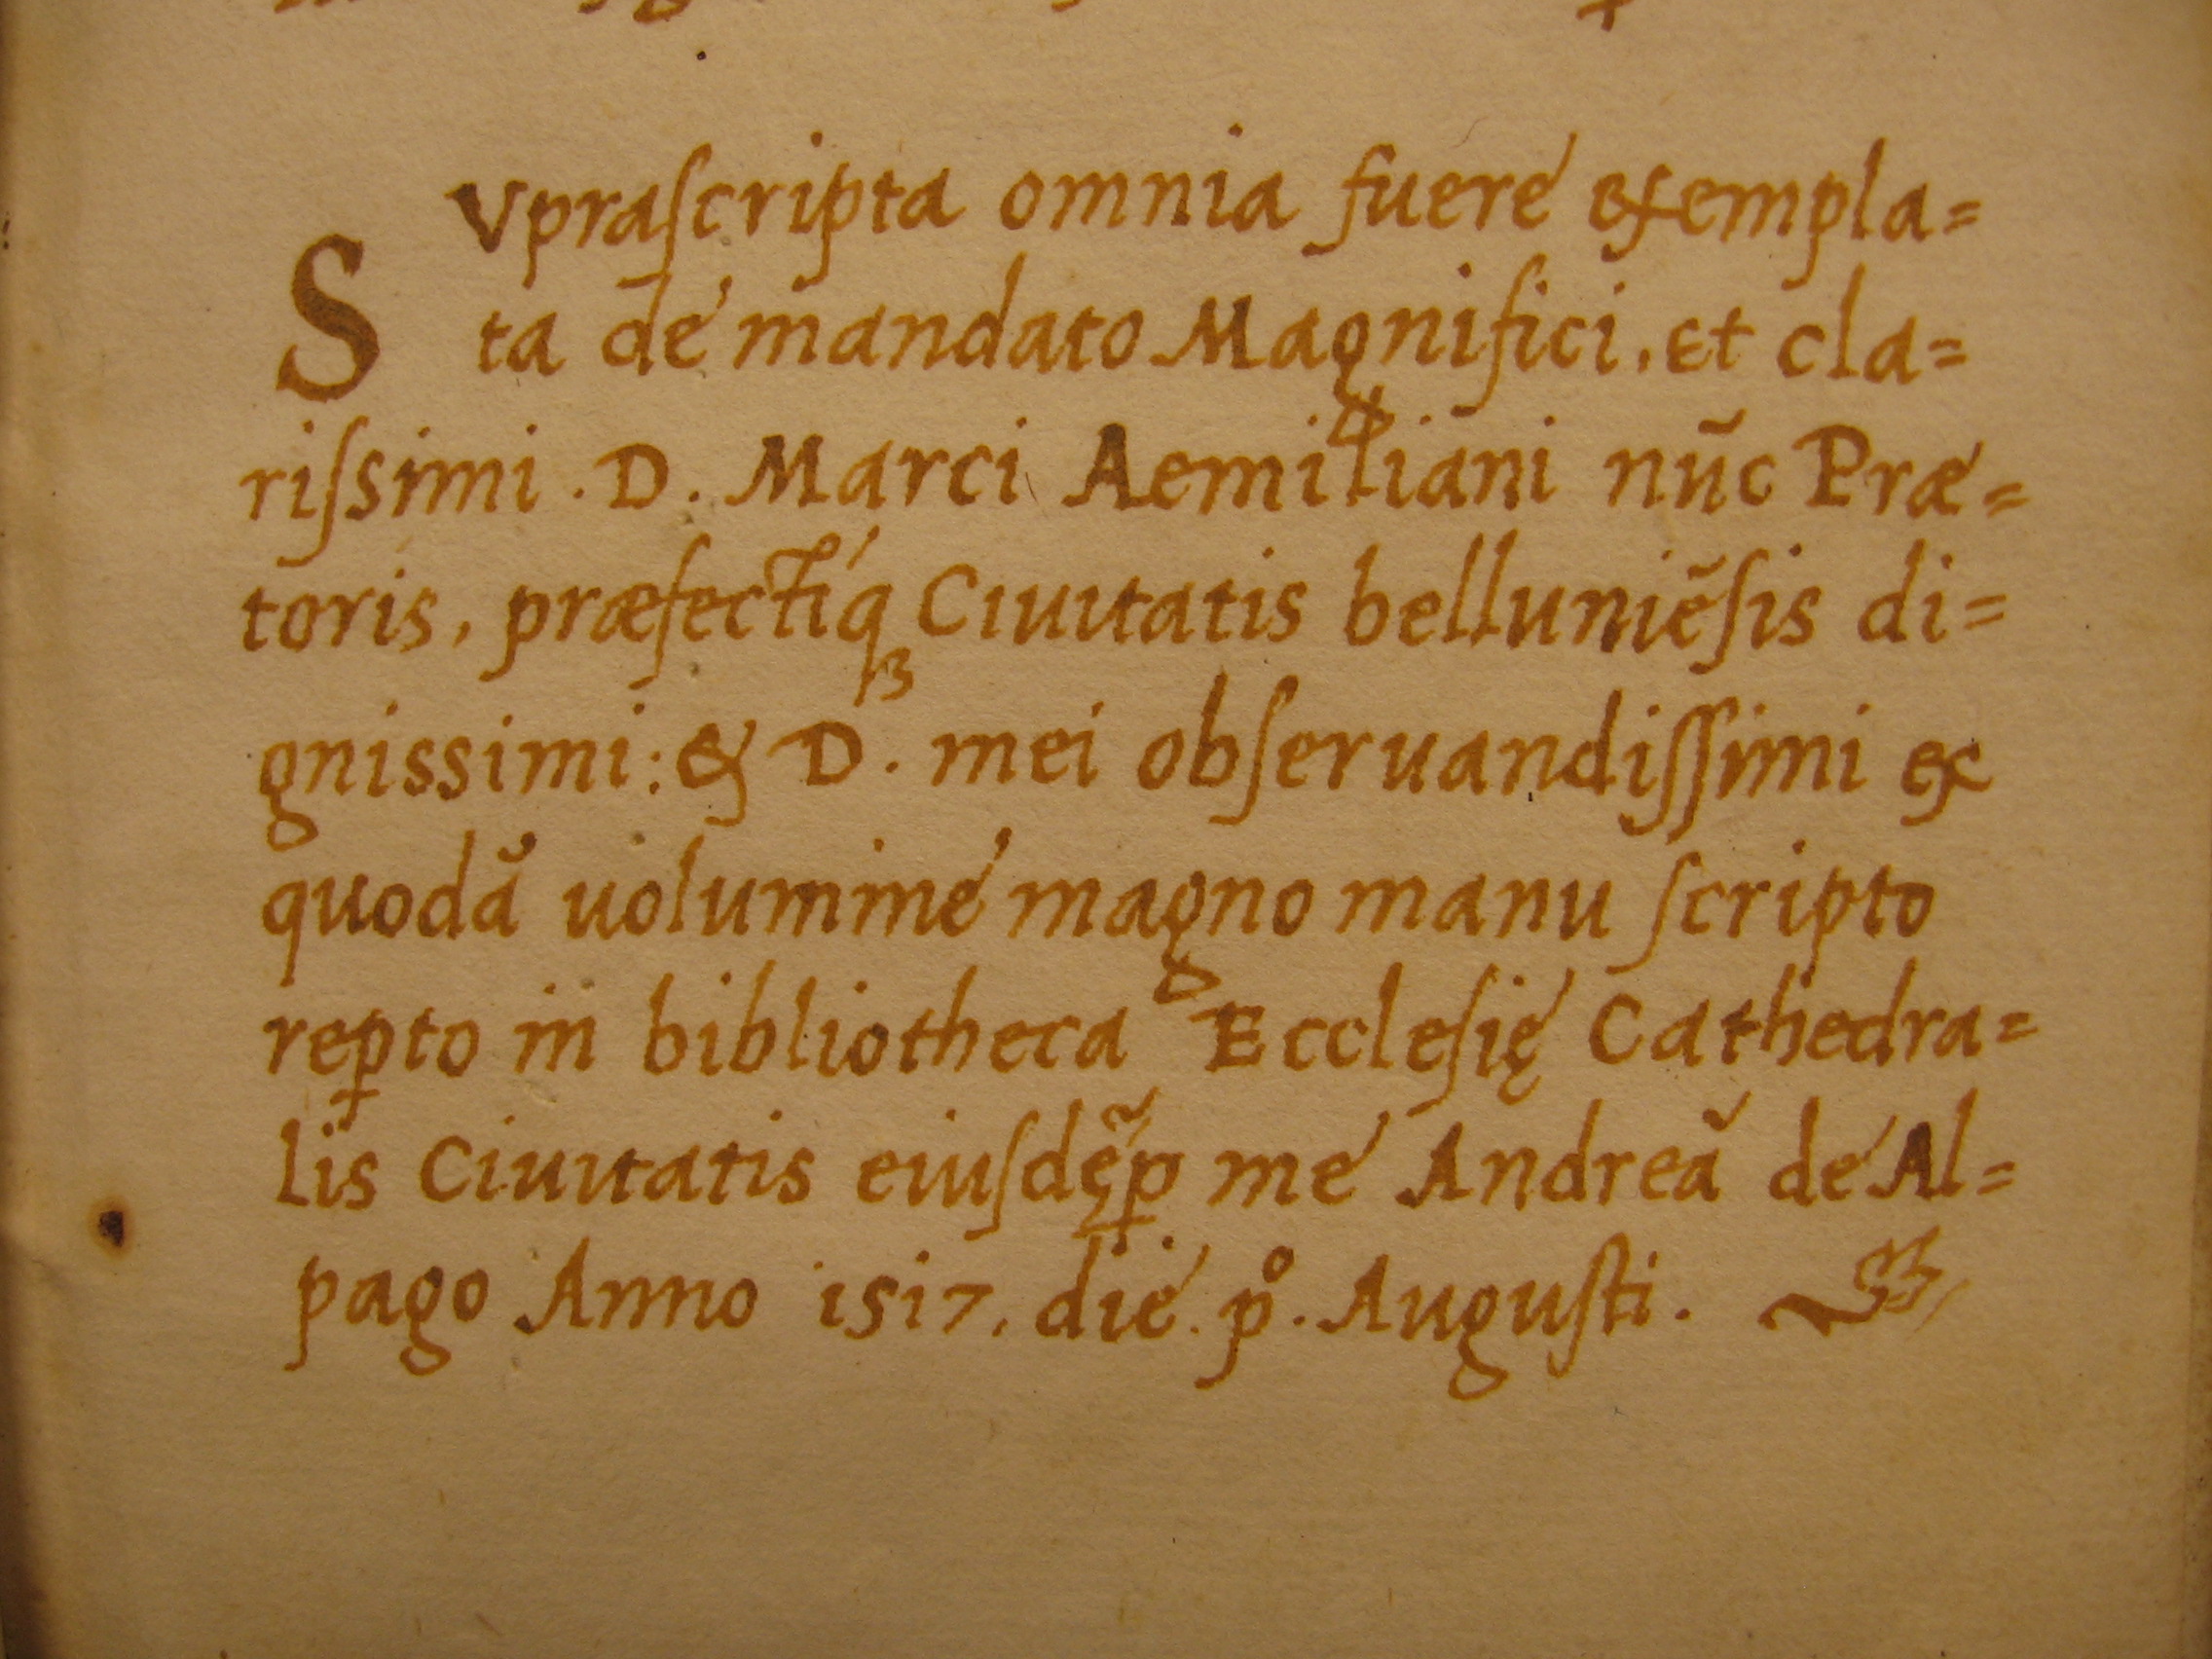 SVpraſcripta omnia fuere exempla=
ta de mandato Magnifici, et cla=
riſsimi . D . Marci Aemiliani nũc Præ=
toris, præfectiq́ꝫ Ciuitatis belluniẽſis di=
gnissimi: & D. mei obſeruandiſſimi ex
quodã uolumine magno manu ſcripto
reꝑto in bibliotheca Eccleſię Cathedra=
lis Ciuitatis eiuſdẽ ꝑ me Andreã de Al=
pago Anno 1517. die. pº. Auguſti.